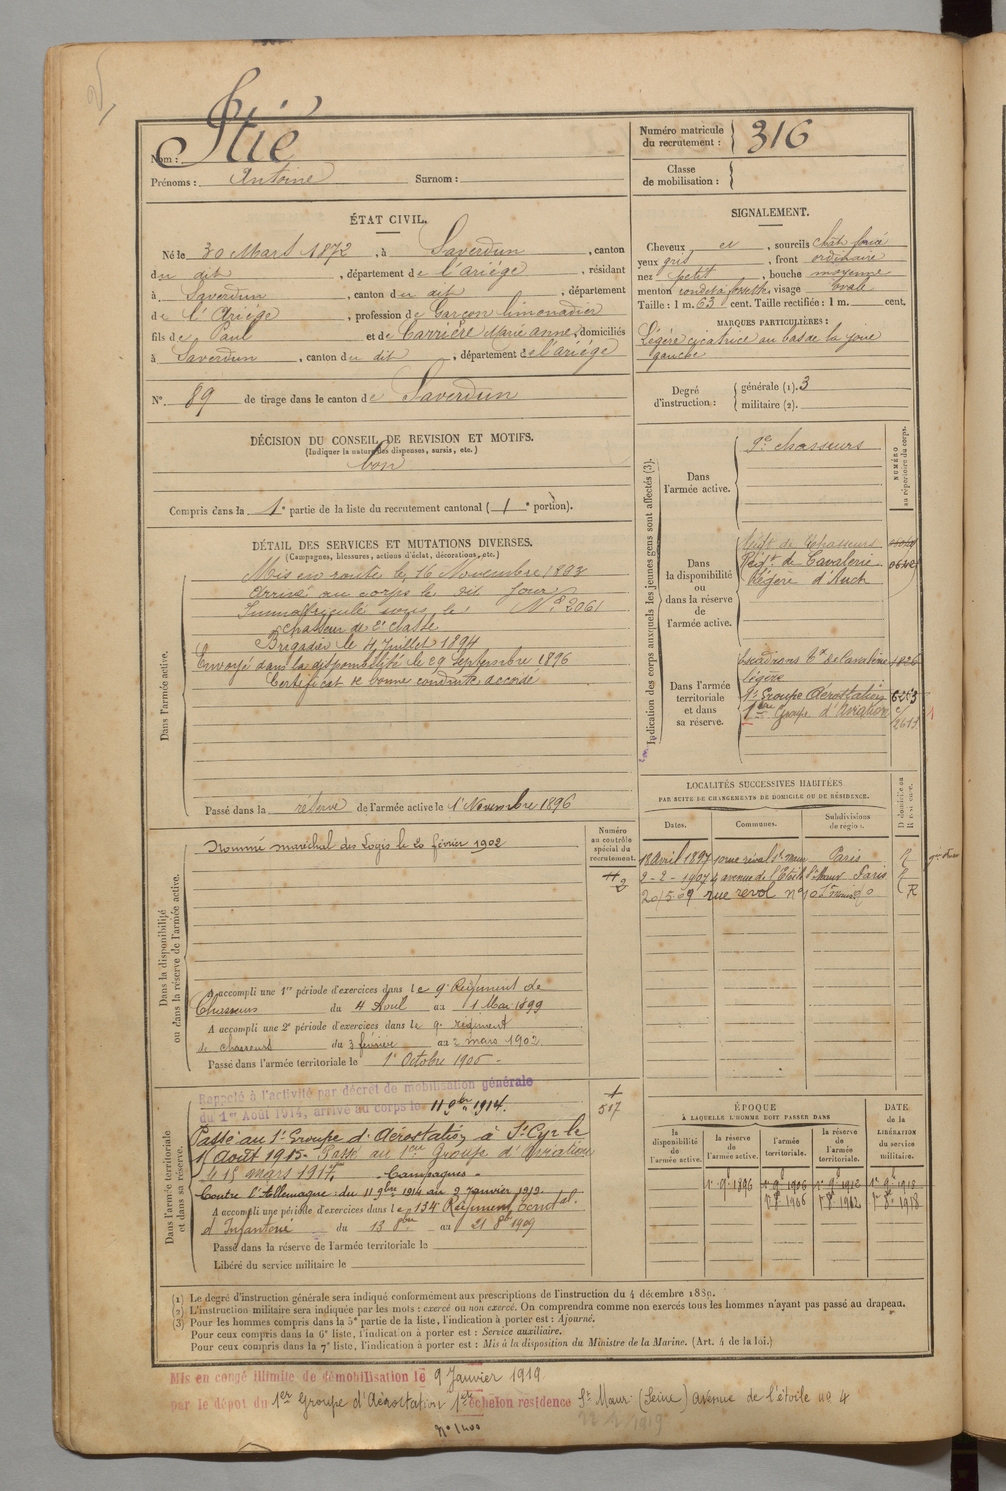 Nom : Stié
Prénoms : Antoine Surnom :
Numéro matricule du recrutement : 316
Classe de mobilisation :
ÉTAT CIVIL.
Né le 30 Mars 1872, à Saverdun, canton
du dit, département de l'ariége, résidant
à Saverdun, canton du dit, département
de l'Ariége, profession de Garçon limonadier
fils de Paul et de Carrière Marie Anne, domiciliés
à Saverdun, canton du dit, département de l'ariége
N° 89 de tirage dans le canton de Saverdun
SIGNALEMENT.
Cheveux et, sourcils chât. foncé
yeux gris, front ordinaire
nez petit, bouche moyenne
menton rond et à fossette, visage Ovale
Taille : 1 m. 63 cent. Taille rectifiée : 1 m. cent.
MARQUES PARTICULIÈRES :
Légère cicatrice au bas de la joue
gauche
Degré d'instruction : générale (1). 3
militaire (2).
DÉCISION DU CONSEIL DE REVISION ET MOTIFS.
(Indiquer la nature des dispenses, sursis, etc.)
bon
Compris dans la 1e partie de la liste du recrutement cantonal (1e portion).
DÉTAIL DES SERVICES ET MUTATIONS DIVERSES.
(Campagnes, blessures, actions d'éclat, décorations, etc.)
Dans l'armée active.
Mis en route le 16 Novembre 1893
Arrivé au corps le dit jour
Immatriculé sous le N° 2061
chasseur de 2e classe
Brigadier le 4 Juillet 1894
Envoyé dans la disponibilité le 29 Septembre 1896
Certificat de bonne conduite accordé
Passé dans la réserve de l'armée active le 1er Novembre 1896
Indication des corps auxquels les jeunes gens sont affectés (3).
NUMÉRO au répertoire du corps.
Dans l'armée active.
9e chasseurs
Dans la disponibilité ou dans la réserve de l'armée active.
Régt de Chasseurs
Régt de Cavalerie
Légère d'Auch
Dans l'armée territoriale et dans sa réserve.
Escadrons Tx de Cavalerie
Légère
1er Groupe Aérostation
1er Groupe d'Aviation
LOCALITÉS SUCCESSIVES HABITÉES
PAR SUITE DE CHANGEMENTS DE DOMICILE OU DE RÉSIDENCE.
Dates. Communes. Subdivisions de région. D domicile ou R résidence.
18 avril 1897 10 rue revol St Maur Paris R
2-2-1907 4 avenue de l'Etoile St Maur Paris R
20/5/09 rue revol n° 10 R
Dans la disponibilité ou dans la réserve de l'armée active.
Numéro au contrôle spécial du recrutement.
Nommé maréchal des Logis le 20 février 1902
A accompli une 1re période d'exercices dans le 9e Régiment de
Chasseurs du 4 Avril au 1 Mai 1899
A accompli une 2e période d'exercices dans le 9e régiment
de chasseurs du 3 février au 2 mars 1902
Passé dans l'armée territoriale le 1er Octobre 1906
Dans l'armée territoriale et dans sa réserve.
Rappelé à l'activité par décret de mobilisation générale
du 1er Août 1914, arrivé au corps le 11 9bre 1914.
517
Passé au 1er Groupe d'Aérostation à St Cyr le
1 Août 1915 - Passé au 1er Groupe d'Aviation
le 15 mars 1917. - Campagnes -
Contre l'Allemagne : du 11 9bre 1914 au 9 Janvier 1919.
A accompli une période d'exercices dans le 134e Régiment territal.
d'Infanterie du 13 8bre au 21 8bre 1909
Passé dans la réserve de l'armée territoriale le
Libéré du service militaire le
ÉPOQUE
À LAQUELLE L'HOMME DOIT PASSER DANS
DATE de la LIBÉRATION du service militaire.
la disponibilité de l'armée active. la réserve de l'armée active. l'armée territoriale. la réserve de l'armée territoriale.
1er 9bre 1896
(1) Le degré d'instruction générale sera indiqué conformément aux prescriptions de l'instruction du 4 décembre 1889.
(2) L'instruction militaire sera indiquée par les mots : exercé ou non exercé. On comprendra comme non exercés tous les hommes n'ayant pas passé au drapeau.
(3) Pour les hommes compris dans la 5e partie de la liste, l'indication à porter est : Ajourné.
Pour ceux compris dans la 6e liste, l'indication à porter est : Service auxiliaire.
Pour ceux compris dans la 7e liste, l'indication à porter est : Mis à la disposition du Ministre de la Marine. (Art. 4 de la loi.)
Mis en congé illimité de démobilisation le 9 Janvier 1919
par le dépôt du 1er Groupe d'Aérostation 1er échelon résidence St Maur (Seine) avenue de l'étoile n° 4
N° 1400